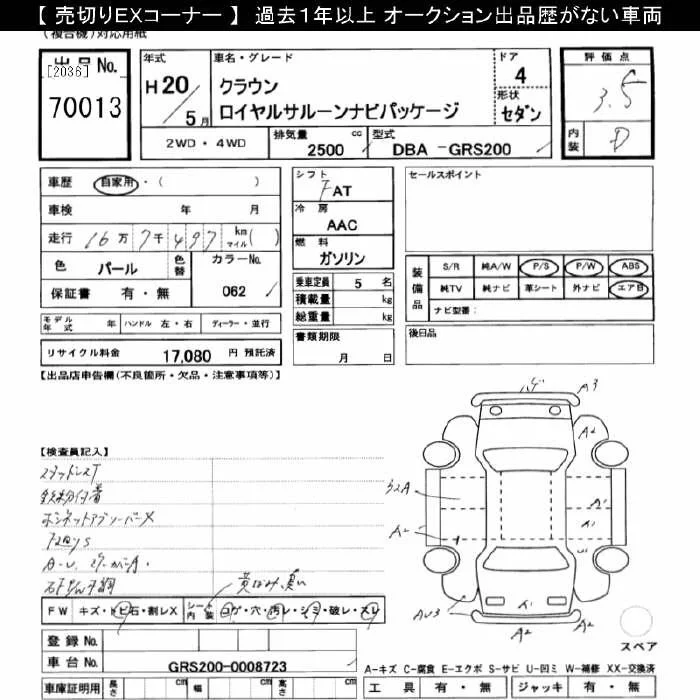 【 売切りEXコーナー 】 過去1年以上 オークション出品歴がない車両
(複合機)対応用紙
出品No.
[2036]
70013
年式
H20/5月
車名・グレード
クラウン
ロイヤルサルーンナビパッケージ
ドア
4
形状
セダン
評価点
3.5
内装
D
2WD・4WD
排気量
2500 cc
型式
DBA -GRS200
車歴 自家用・( )
車検 年 月
走行 16万7千497 km マイル( )
色 パール 色替
カラーNo.
062
保証書 有・無
モデル年式 年 ハンドル 左・右 ディーラー・並行
リサイクル料金 17,080 円 預託済
シフト
FAT
冷房
AAC
燃料
ガソリン
乗車定員 5 名
積載量 kg
総重量 kg
書類期限
月 日
セールスポイント
装備品
S/R 純A/W P/S P/W ABS
純TV 純ナビ 革シート 外ナビ エアB
ナビ型番:
後日品
【出品店申告欄(不良箇所・欠品・注意事項等)】
【検査員記入】
スタッドレスT
鉄粉付着
ボンネットアブソーバーX
A3
A2
A2
A2
A1
A2
A2
FW キズ・トビ石・割レX
シート内装 コゲ・穴・汚レ・シミ・破レ・スレ
登録No.
車台No. GRS200-0008723
車庫証明用 長さ cm 幅 cm 高さ cm
スペア
A-キズ C-腐食 E-エクボ S-サビ U-凹ミ W-補修 XX-交換済
工具 有・無 ジャッキ 有・無